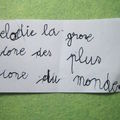 elodie la grose
cone des plus
cone du monde